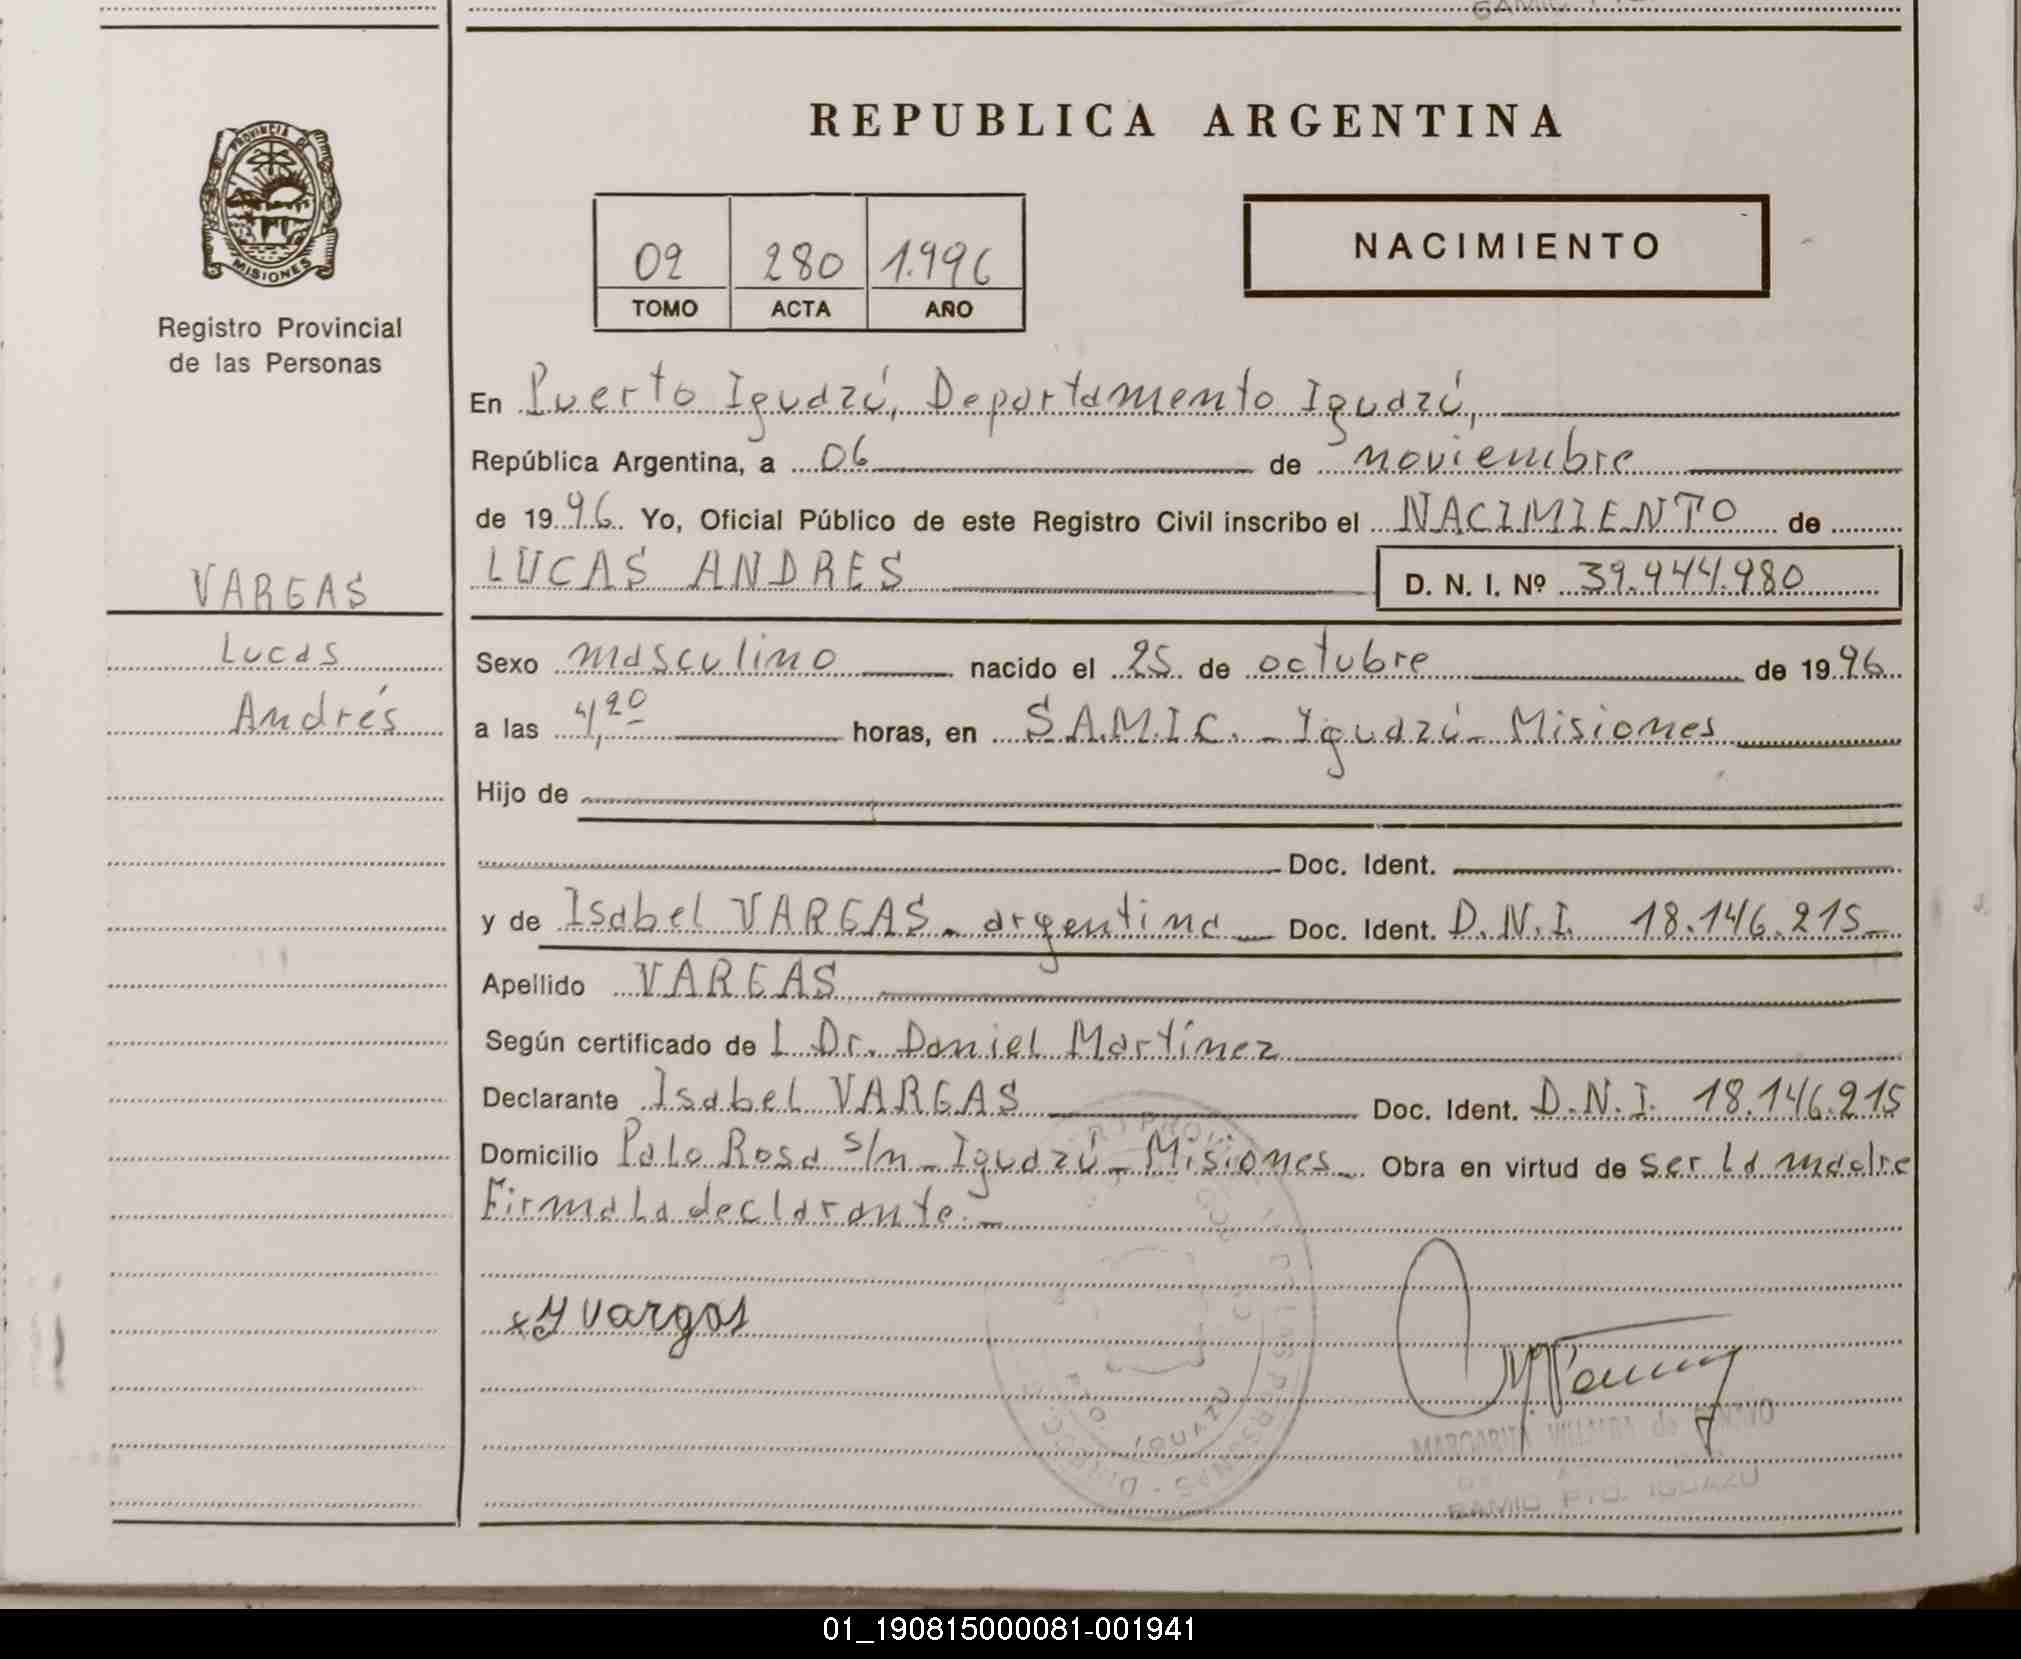 REPUBLICA ARGENTINA
PROVINCIA DE
MISIONES
Registro Provincial
de las Personas
02 280 1.996
TOMO ACTA AÑO
NACIMIENTO
En Puerto Iguazú, Departamento Iguazú,
República Argentina, a 06 de noviembre
de 1996 Yo, Oficial Público de este Registro Civil inscribo el NACIMIENTO de
LUCAS ANDRES D. N. I. Nº 39.944.980
VARGAS
Lucas
Andrés
Sexo masculino nacido el 25 de octubre de 1996
a las 4,20 horas, en S.A.M.I.C. - Iguazú - Misiones
Hijo de
Doc. Ident.
y de Isabel VARGAS - argentina - Doc. Ident. D.N.I. 18.146.215 -
Apellido VARGAS
Según certificado de l Dr. Daniel Martínez
Declarante Isabel VARGAS Doc. Ident. D.N.I. 18.146.215
Domicilio Palo Rosa s/n - Iguazú - Misiones - Obra en virtud de ser la madre
Firma la declarante. -
x y vargas
MARGARITA VILLALBA de
SAMIC PTO. IGUAZU
01_190815000081-001941